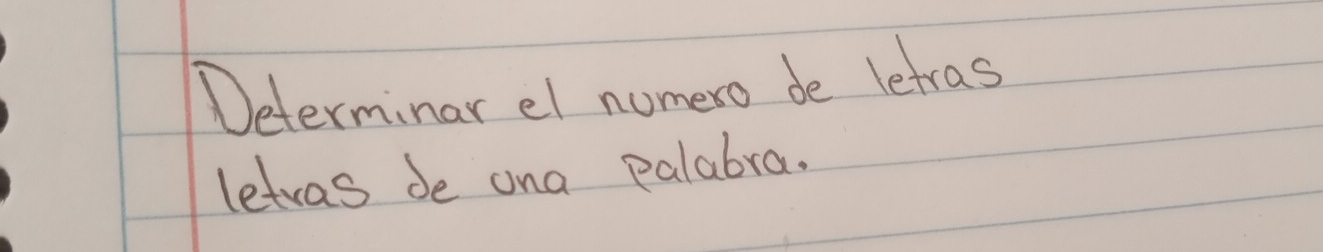 Determinar el numero de letras
letras de una palabra.